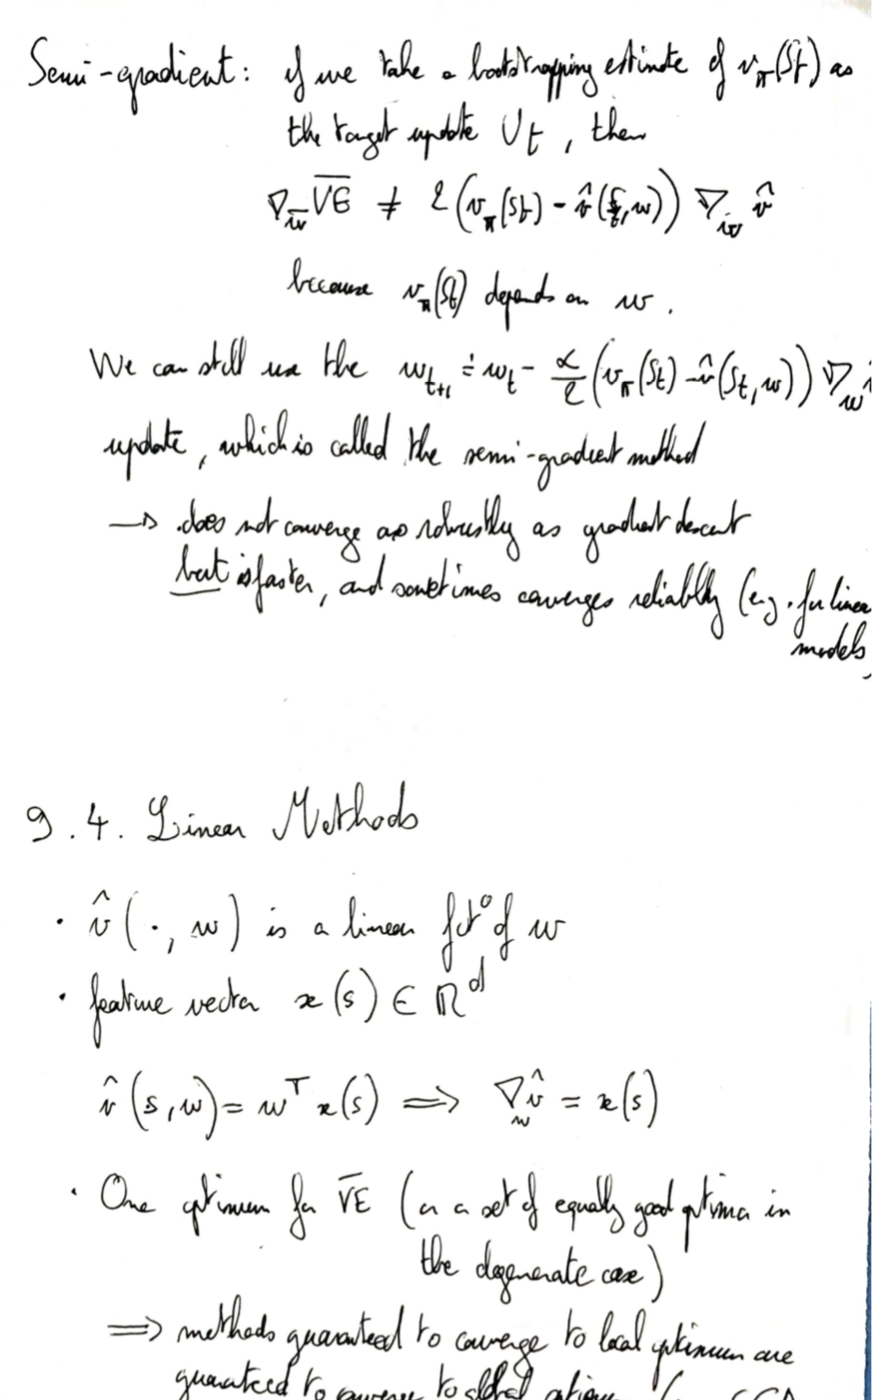 Semi-gradient: if we take a bootstrapping estimate of v_π(St) as
the target update Ut, then
∇_w VE ≠ 2(v_π(St) - v̂(St,w)) ∇_w v̂
because v_π(St) depends on w.
We can still use the w_{t+1} ≐ w_t - α/2 (v_π(St) - v̂(St,w)) ∇_w
update, which is called the semi-gradient method
→ does not converge as robustly as gradient descent
but is faster, and sometimes converges reliably (e.g. for linear
models,
9.4. Linear Methods
• v̂(·, w) is a linear fct° of w
• feature vector x(s) ∈ ℝ^d
v̂(s,w) = w^T x(s) ⟹ ∇_w v̂ = x(s)
• One optimum for VE (or a set of equally good optima in
the degenerate case)
⟹ methods guaranteed to converge to local optimum are
guaranteed to converge to global